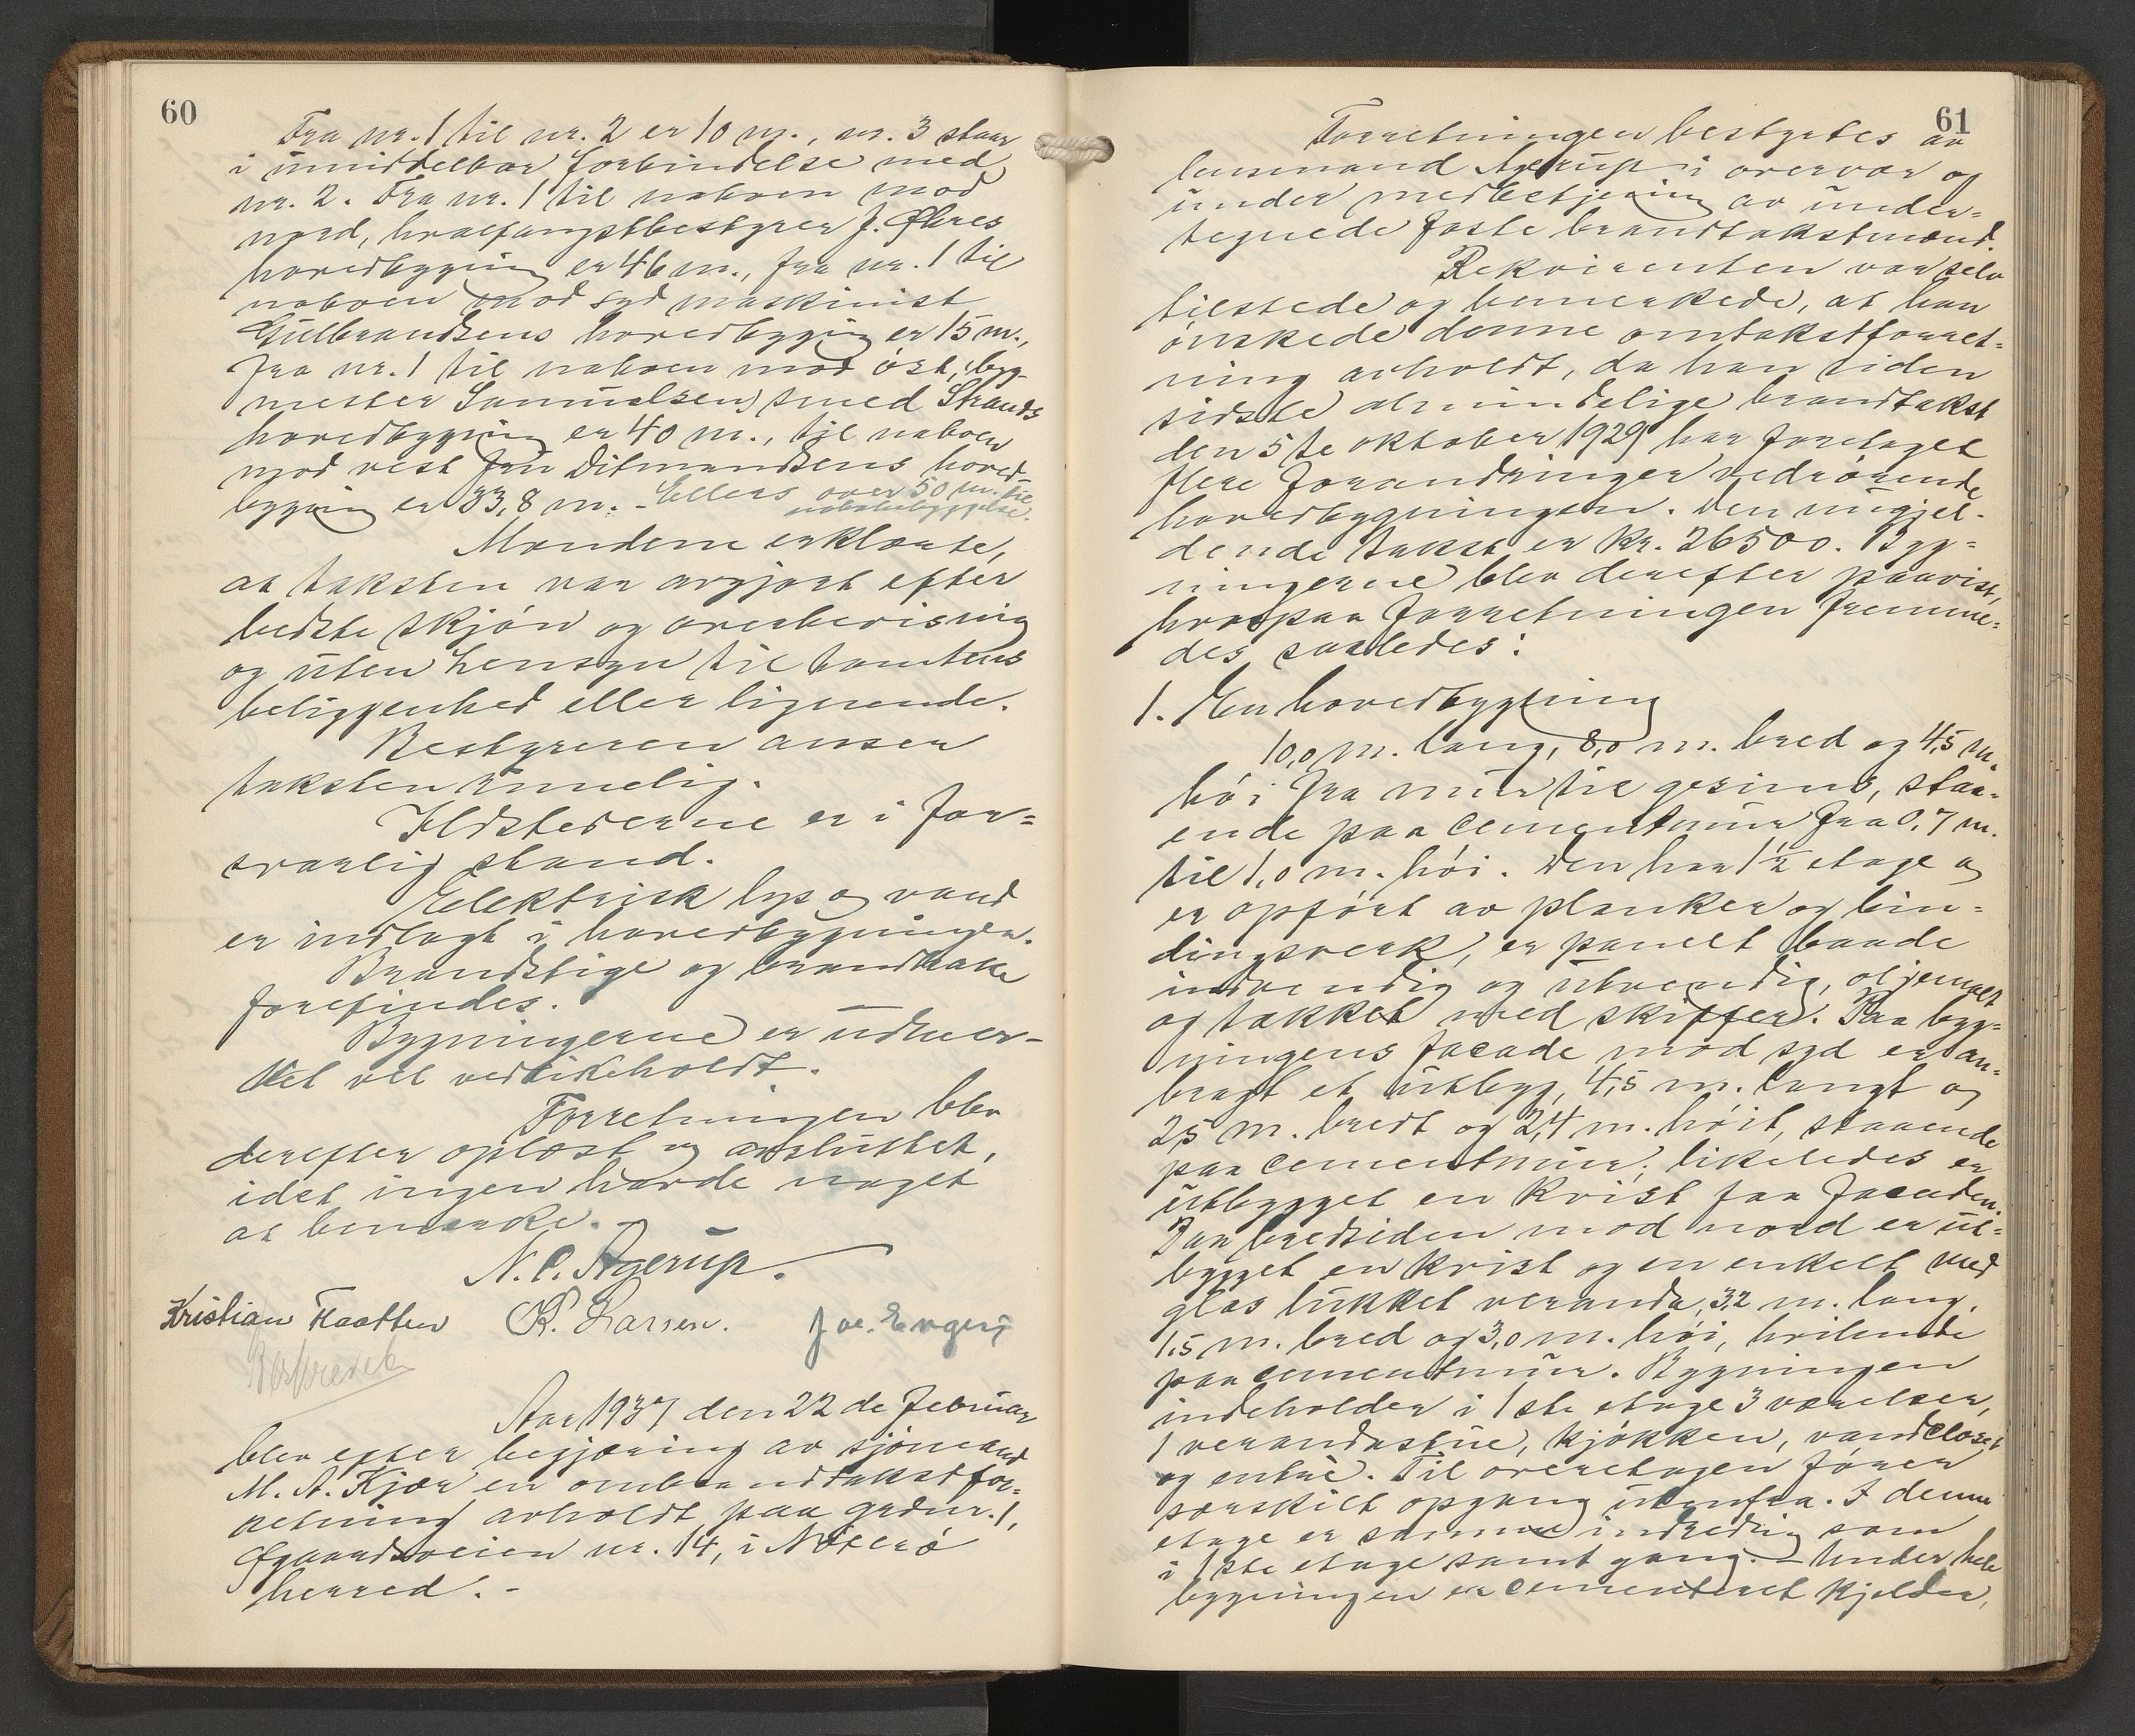 60
Fra nr. 1 til nr. 2 er 10 m., nr. 3 staar
i umiddelbar forbindelse med
nr. 2. Fra nr. 1 til naboen mod
nord, hvalfangstbestyrer J. Øhres
hovedbygning er 46 m., fra nr. 1 til
naboen mod syd maskinist
Gulbrandsens hovedbygning er 15 m.,
fra nr. 1 til naboen mod øst, byg-
mester Samuelsen, smed Strands
hovedbygning er 40 m., til naboen
mod vest fru Ditmandsens hoved-
bygning er 33,8 m. - Ellers over 50 m. til
nabobebyggelse.
Mændene erklærte,
at taksten var avgjort efter
bedste skjøn og overbevisning
og uten hensyn til tomtens
beliggenhed eller lignende.
Bestyreren anser
taksten rimelig.
Ildstederne er i for-
svarlig stand.
Elektrisk lys og vand
er indlagt i hovedbygningen.
Brandstige og brandhake
forefindes.
Bygningerne er udmer-
ket vel vedlikeholdt.
Forretningen blev
derefter oplæst og avsluttet,
idet ingen havde noget
at bemerke. -
N. C. Agerup.
Kristian Kaatten K. Larsen. Joe. Engen
Beskrevet
Aar 1937 den 22 de februar
blev efter begjæring av sjømand
M. A. Kjær en ombrandtakstfor-
retning avholdt paa grdnr. 1,
Øgaardsveien nr. 14, i Nøterø
herred. -
61
Forretningen bestyrtes av
lensmand Agerup i overvær og
under medbetjening av under-
tegnede faste brandtakstmænd.
Rekvirenten var selv
tilstede og bemerkede, at han
ønskede denne omtakstforret-
ning avholdt, da han siden
sidste almindelige brandtakst
den 5 te oktober 1929 har foretaget
flere forandringer vedrørende
hovedbygningen. Den nugjel-
dende takst er kr. 26500. Byg-
ningerne blev derefter paavist,
hvorpaa forretningen fremme-
des saaledes:
1. En hovedbygning
10,0 m. lang, 8,0 m. bred og 4,5 m.
høi fra mur til gesims, staa-
ende paa cementmur fra 0,7 m.
til 1,0 m. høi. Den har 1½ etage og
er opført av planker og bin-
dingsverk, er panelt baade
indvendig og utvendig, oljemalt
og tækket med skiffer. Paa byg-
ningens facade mod syd er an-
bragt et utbygg, 4,5 m. langt og
2,5 m. bredt og 2,4 m. høit, staaende
paa cementmur; likeledes er
utbygget en kvist paa facaden.
Paa bredsiden mod nord er ut-
bygget en kvist og en enkelt med
glas lukket veranda, 3,2 m. lang,
1,5 m. bred og 3,0 m. høi, hvilende
paa cementmur. Bygningen
indeholder i 1 ste etage 3 værelser,
1 verandastue, kjøkken, vandcloset
og entré. Til overetagen fører
særskilt opgang utenfra. I denne
etage er samme indredning som
i 1 ste etage samt gang. - Under hele
bygningen er cementeret kjelder,